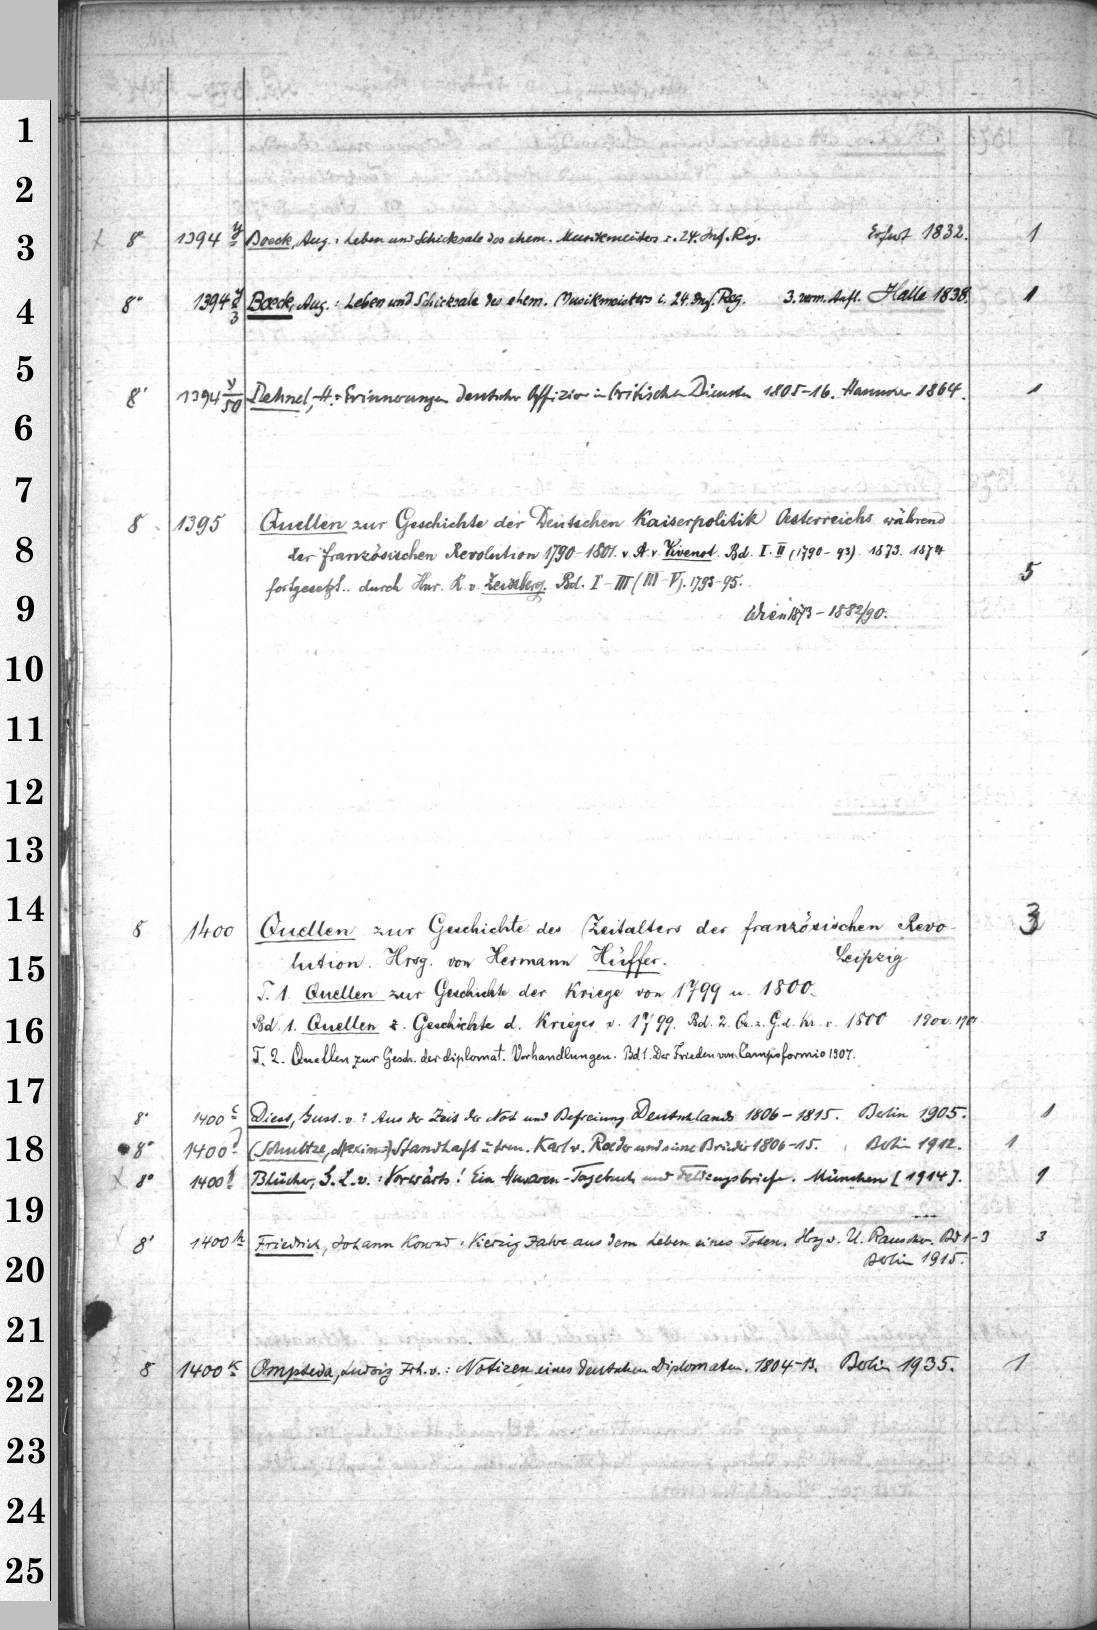 1
2
3
4
5
6
7
8
9
10
11
12
13
14
15
16
17
18
19
20
21
22
23
24
25
8° 1394 y Boeck, Aug.: Leben und Schicksale des ehem. Musikmeisters i. 24. Inf. Reg. Erfurt 1832. 1
8° 1394 y 3 Boeck, Aug.: Leben und Schicksale des ehem. Musikmeisters i. 24. Inf. Reg. 3. verm. Aufl. Halle 1838. 1
8° 1394 y 50 Dehnel, H.: Erinnerungen deutscher Offiziere in britischen Diensten 1805-16. Hannover 1864. 1
8 1395 Quellen zur Geschichte der Deutschen Kaiserpolitik Oesterreichs während
der französischen Revolution 1790-1801. v. A. v. Vivenot. Bd. I. II (1790-93). 1873. 1874
fortgesetzt.. durch Hnr. R. v. Zeissberg. Bd. I-III (III-V). 1793-95. 5
Wien 1873-1882/90.
8 1400 Quellen zur Geschichte des Zeitalters der französischen Revo- 3
lution. Hrsg. von Hermann Hüffer. Leipzig
T. 1. Quellen zur Geschichte der Kriege von 1799 u. 1800.
Bd. 1. Quellen z. Geschichte d. Krieges v. 1799. Bd. 2. Qu. z. G. d. Kr. v. 1800 1900. 1901
T. 2. Quellen zur Gesch. der diplomat. Verhandlungen. Bd 1. Der Frieden von Campoformio 1907.
8° 1400 c Diest, Gust. v.: Aus der Zeit der Not und Befreiung Deutschlands 1806-1815. Berlin 1905. 1
8° 1400 (Schultze, Maximil.) Standhaft u. treu. Karl v. Roeder und seine Brüder 1806-15. Berlin 1912. 1
8° 1400 f Blücher, G. L. v.: Vorwärts! Ein Husaren-Tagebuch und Feldzugsbriefe. München [1914]. 1
8° 1400 h Friedrich, Johann Konrad: Vierzig Jahre aus dem Leben eines Toten. Hrsg v. U. Rauscher. Bd 1-3 3
Berlin 1915.
8 1400 k Ompteda, Ludwig Frh. v.: Notizen eines deutschen Diplomaten. 1804-13. Berlin 1935. 1